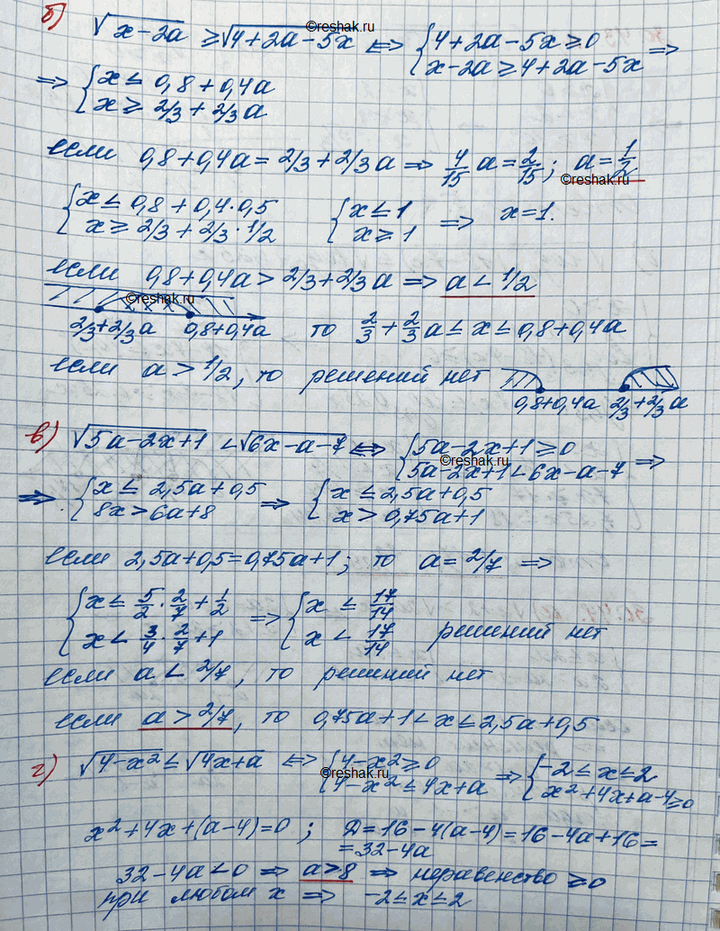 ©reshak.ru
б) √(x-2a) ≥ √(4+2a-5x) ⇔ { 4+2a-5x ≥ 0 ; x-2a ≥ 4+2a-5x ⇒
⇒ { x ≤ 0,8+0,4a ; x ≥ 2/3+2/3a
если 0,8+0,4a = 2/3+2/3a ⇒ 4/15 a = 2/15; a = 1/2
©reshak.ru
{ x ≤ 0,8+0,4·0,5 ; x ≥ 2/3+2/3·1/2 { x ≤ 1 ; x ≥ 1 ⇒ x=1.
если 0,8+0,4a > 2/3+2/3a ⇒ a < 1/2
©reshak.ru
2/3+2/3a 0,8+0,4a то 2/3+2/3a ≤ x ≤ 0,8+0,4a
если a > 1/2, то решений нет
0,8+0,4a 2/3+2/3a
в) √(5a-2x+1) < √(6x-a-7) ⇔ { 5a-2x+1 ≥ 0 ; 5a-2x+1 < 6x-a-7 ⇒
©reshak.ru
⇒ { x ≤ 2,5a+0,5 ; 8x > 6a+8 ⇒ { x ≤ 2,5a+0,5 ; x > 0,75a+1
если 2,5a+0,5 = 0,75a+1; то a = 2/7 ⇒
{ x ≤ 5/2·2/7+1/2 ; x < 3/4·2/7+1 ⇒ { x ≤ 17/14 ; x < 17/14 решений нет
если a < 2/7, то решений нет
если a > 2/7, то 0,75a+1 < x ≤ 2,5a+0,5
г) √(4-x²) ≤ √(4x+a) ⇔ { 4-x² ≥ 0 ; 4-x² ≤ 4x+a ⇒ { -2 ≤ x ≤ 2 ; x²+4x+a-4 ≥ 0
©reshak.ru
x²+4x+(a-4)=0 ; D=16-4(a-4)=16-4a+16=
=32-4a
32-4a<0 ⇒ a>8 ⇒ неравенство ≥0
при любом x ⇒ -2 ≤ x ≤ 2